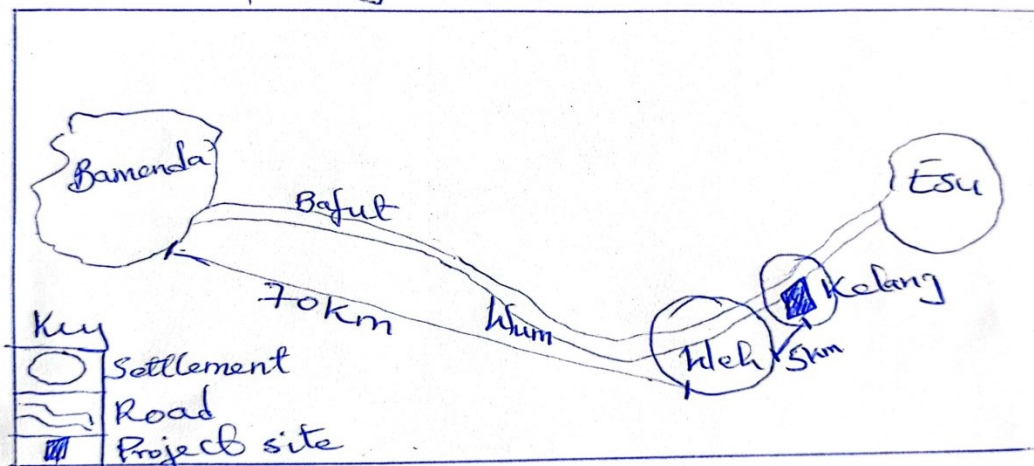 Bamenda
Bafut
Esu
Kelang
70km
Wum
Weh
5km
Key
Settlement
Road
Project site